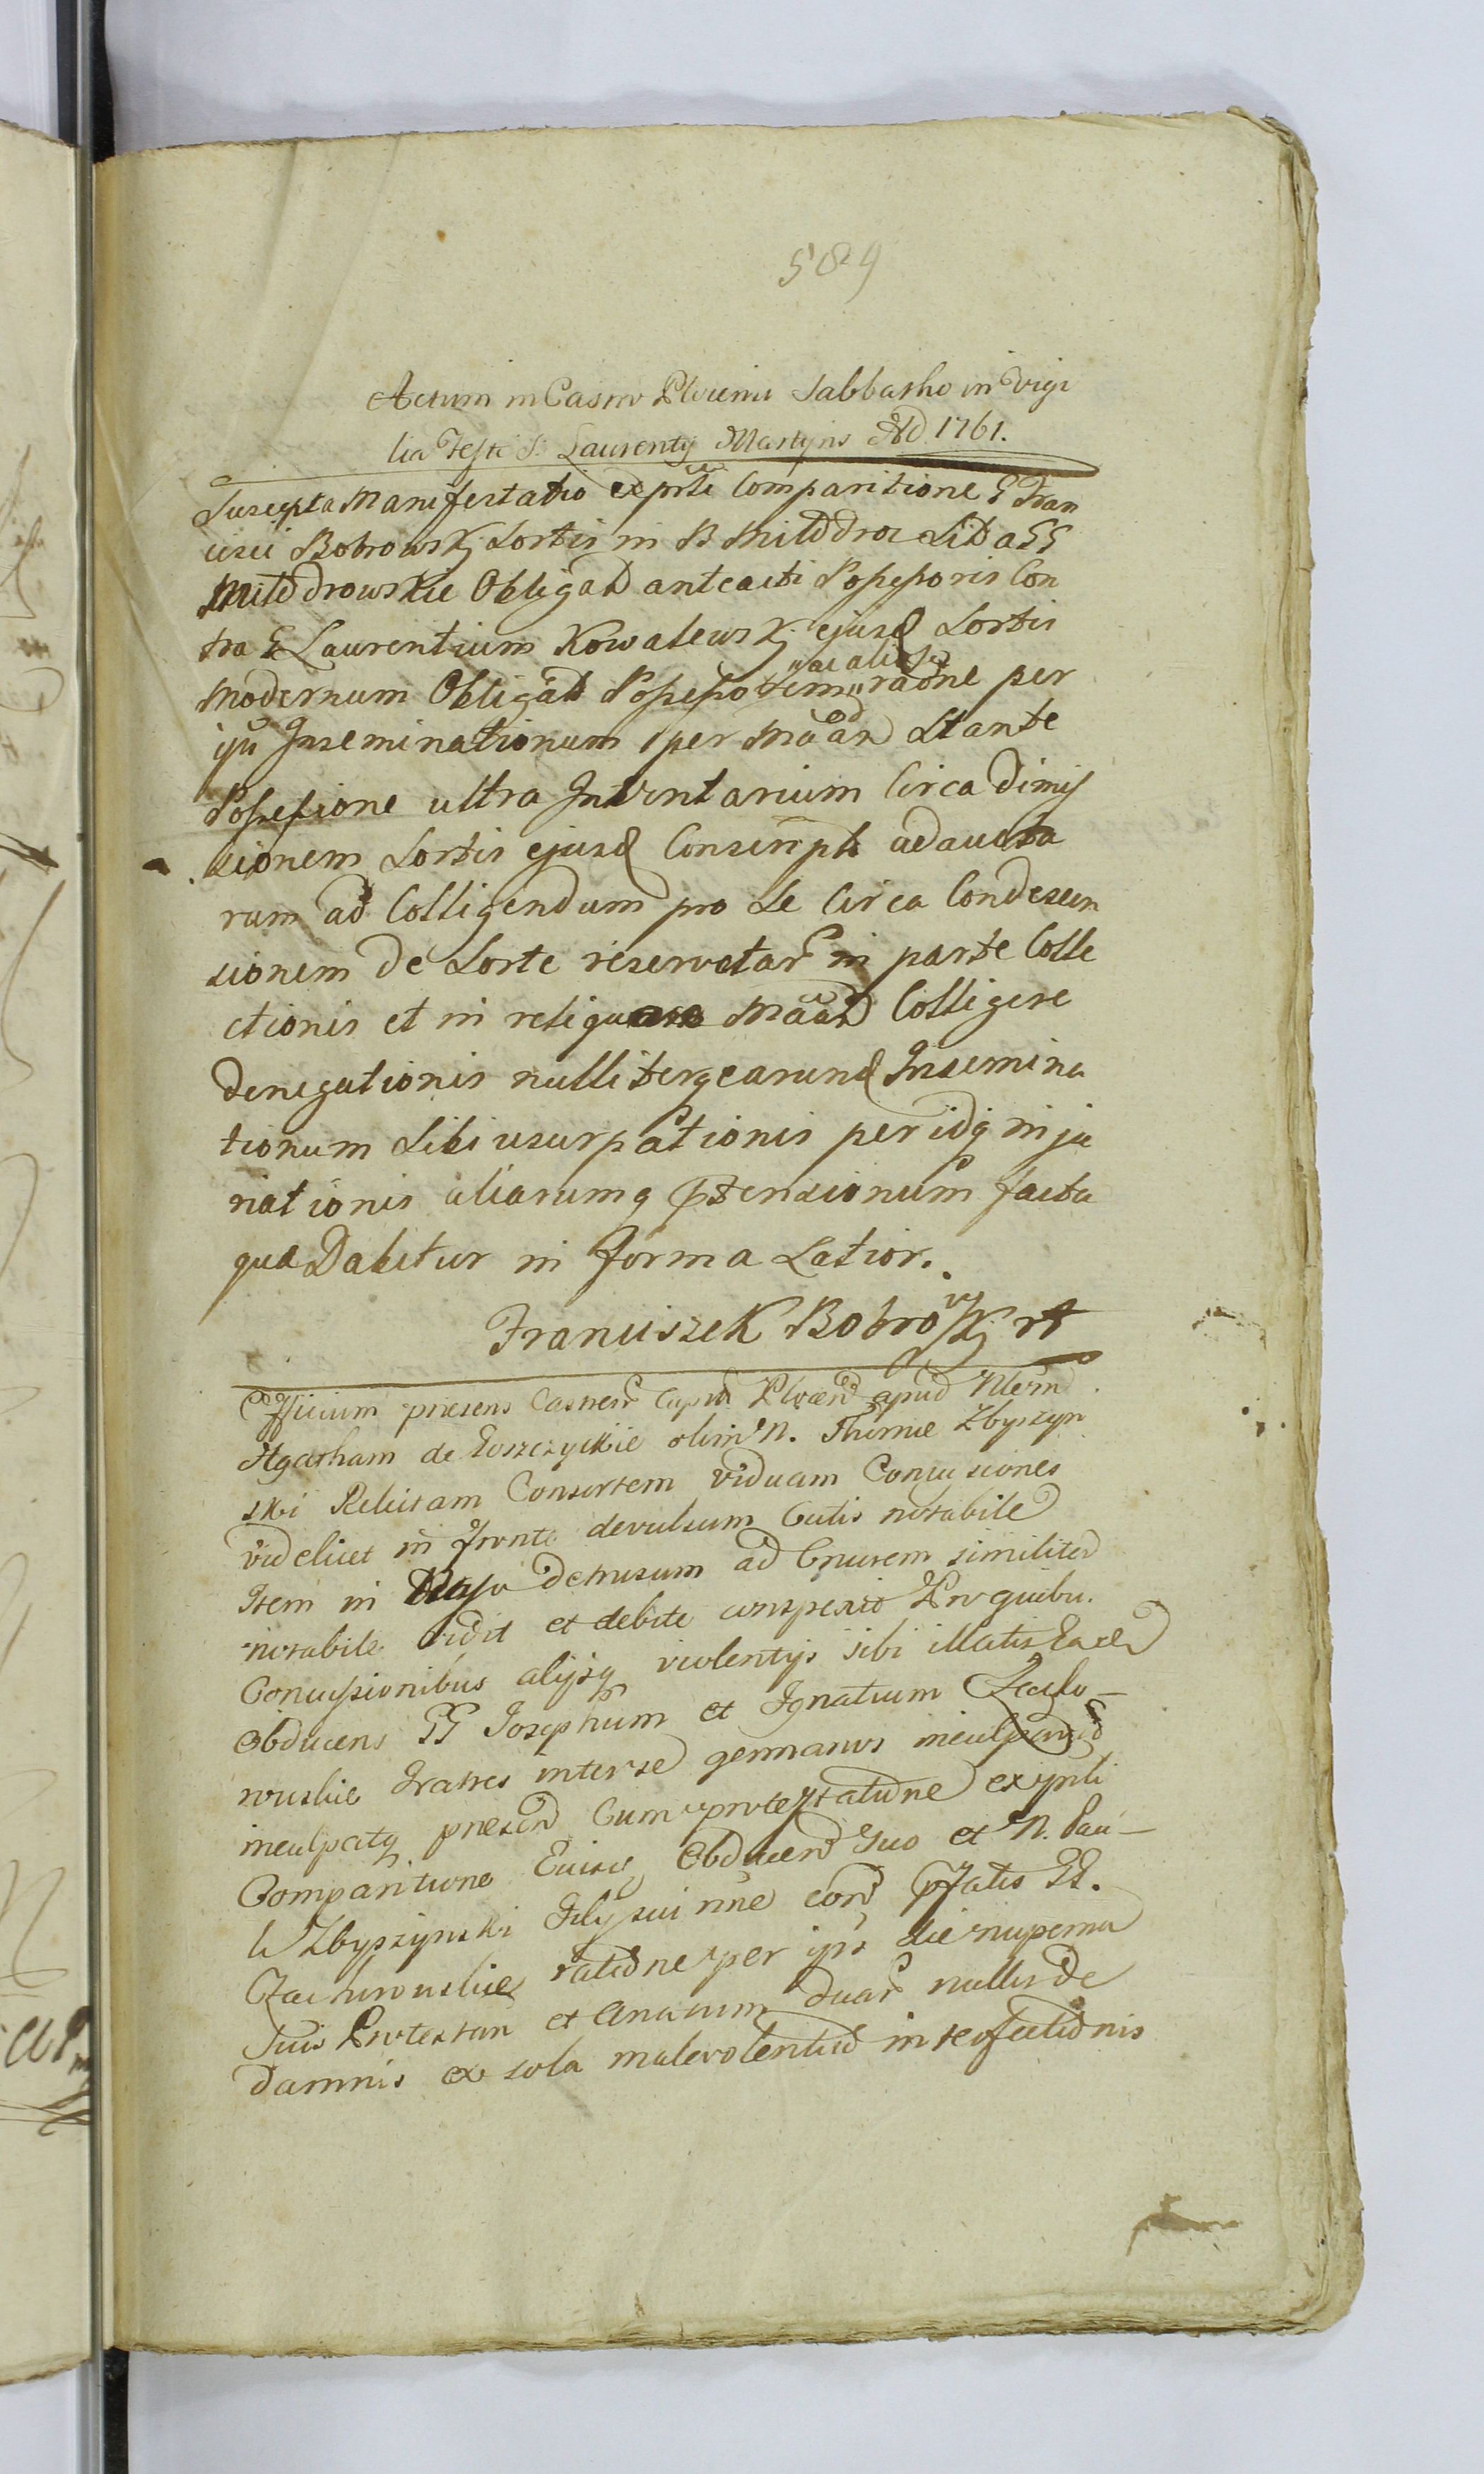 589
Actum in Castro Plocensi Sabbatho in Vigi
lia Festi S. Laurentij Martyris AD. 1761.
Suscepta Manifestatio ex prti Comparitione G Fran
cisci Bobrowskj Sortis in B Miłodroz Sib a GG
Miłodrowskie Obligat anteacti Possessoris Con
tra G Laurentium Kowalewskj ejusd Sortis
modernum Obligat Possessorem raone per
ac alios
ips Inseminationum per Stante
Possessione ultra Inventarium Circa dimis
sionem Sortis ejusd Conscripti adaucta
rum ad Colligendum pro Se Circa Condescen
sionem de Sorte reservatar in parte Colle
ctionis et in reliquo Colligere
denegationis nulliterq earund Insemina
tionum Sibi usurpationis per idq inju
riationis aliarumq Ptensionum facta
qua Dabitur in forma Latior.
Franciszek Bobrowskj
Officium praesens Castren Capit Plocen apud
Agatham de olim N. Thomae Zbyszyn
ski Relictam Consortem viduam Concusiones
videlicet in fronte devulsum Cutis notabile
Item in detrusum ad Cruorem similiter
notabile vidit et debite conspexit Pro quibu.
Concussionibus alijsq violentijs sibi illatis Eadem
Obducens GG Josephum et Ignatium
rowskie Fratres inter se germanos
inculpatq presen Cum protestatione ex prti
Comparitione Obducen Suo et N. Pau
li Zbyszynski Filij sui nne con Pfatis GG.
ratione per ips die nuperna
Suis Protestan et Anatum duar nullis de
damnis ex sola malevolentia interfectionis